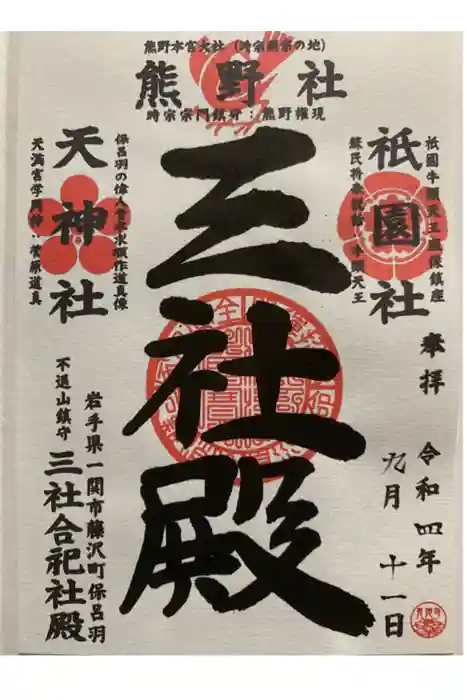 熊野本宮大社（時宗開宗の地）
熊野社
時宗宗門鎮守：熊野権現
祇園社
祇園牛頭天王
蘇民将来
牛頭天王
三社殿
天神社
保呂羽の偉人
天満宮学問神：菅原道真
奉拝
令和四年
九月十一日
岩手県一関市藤沢町保呂羽
不退山鎮守
三社合祀社殿